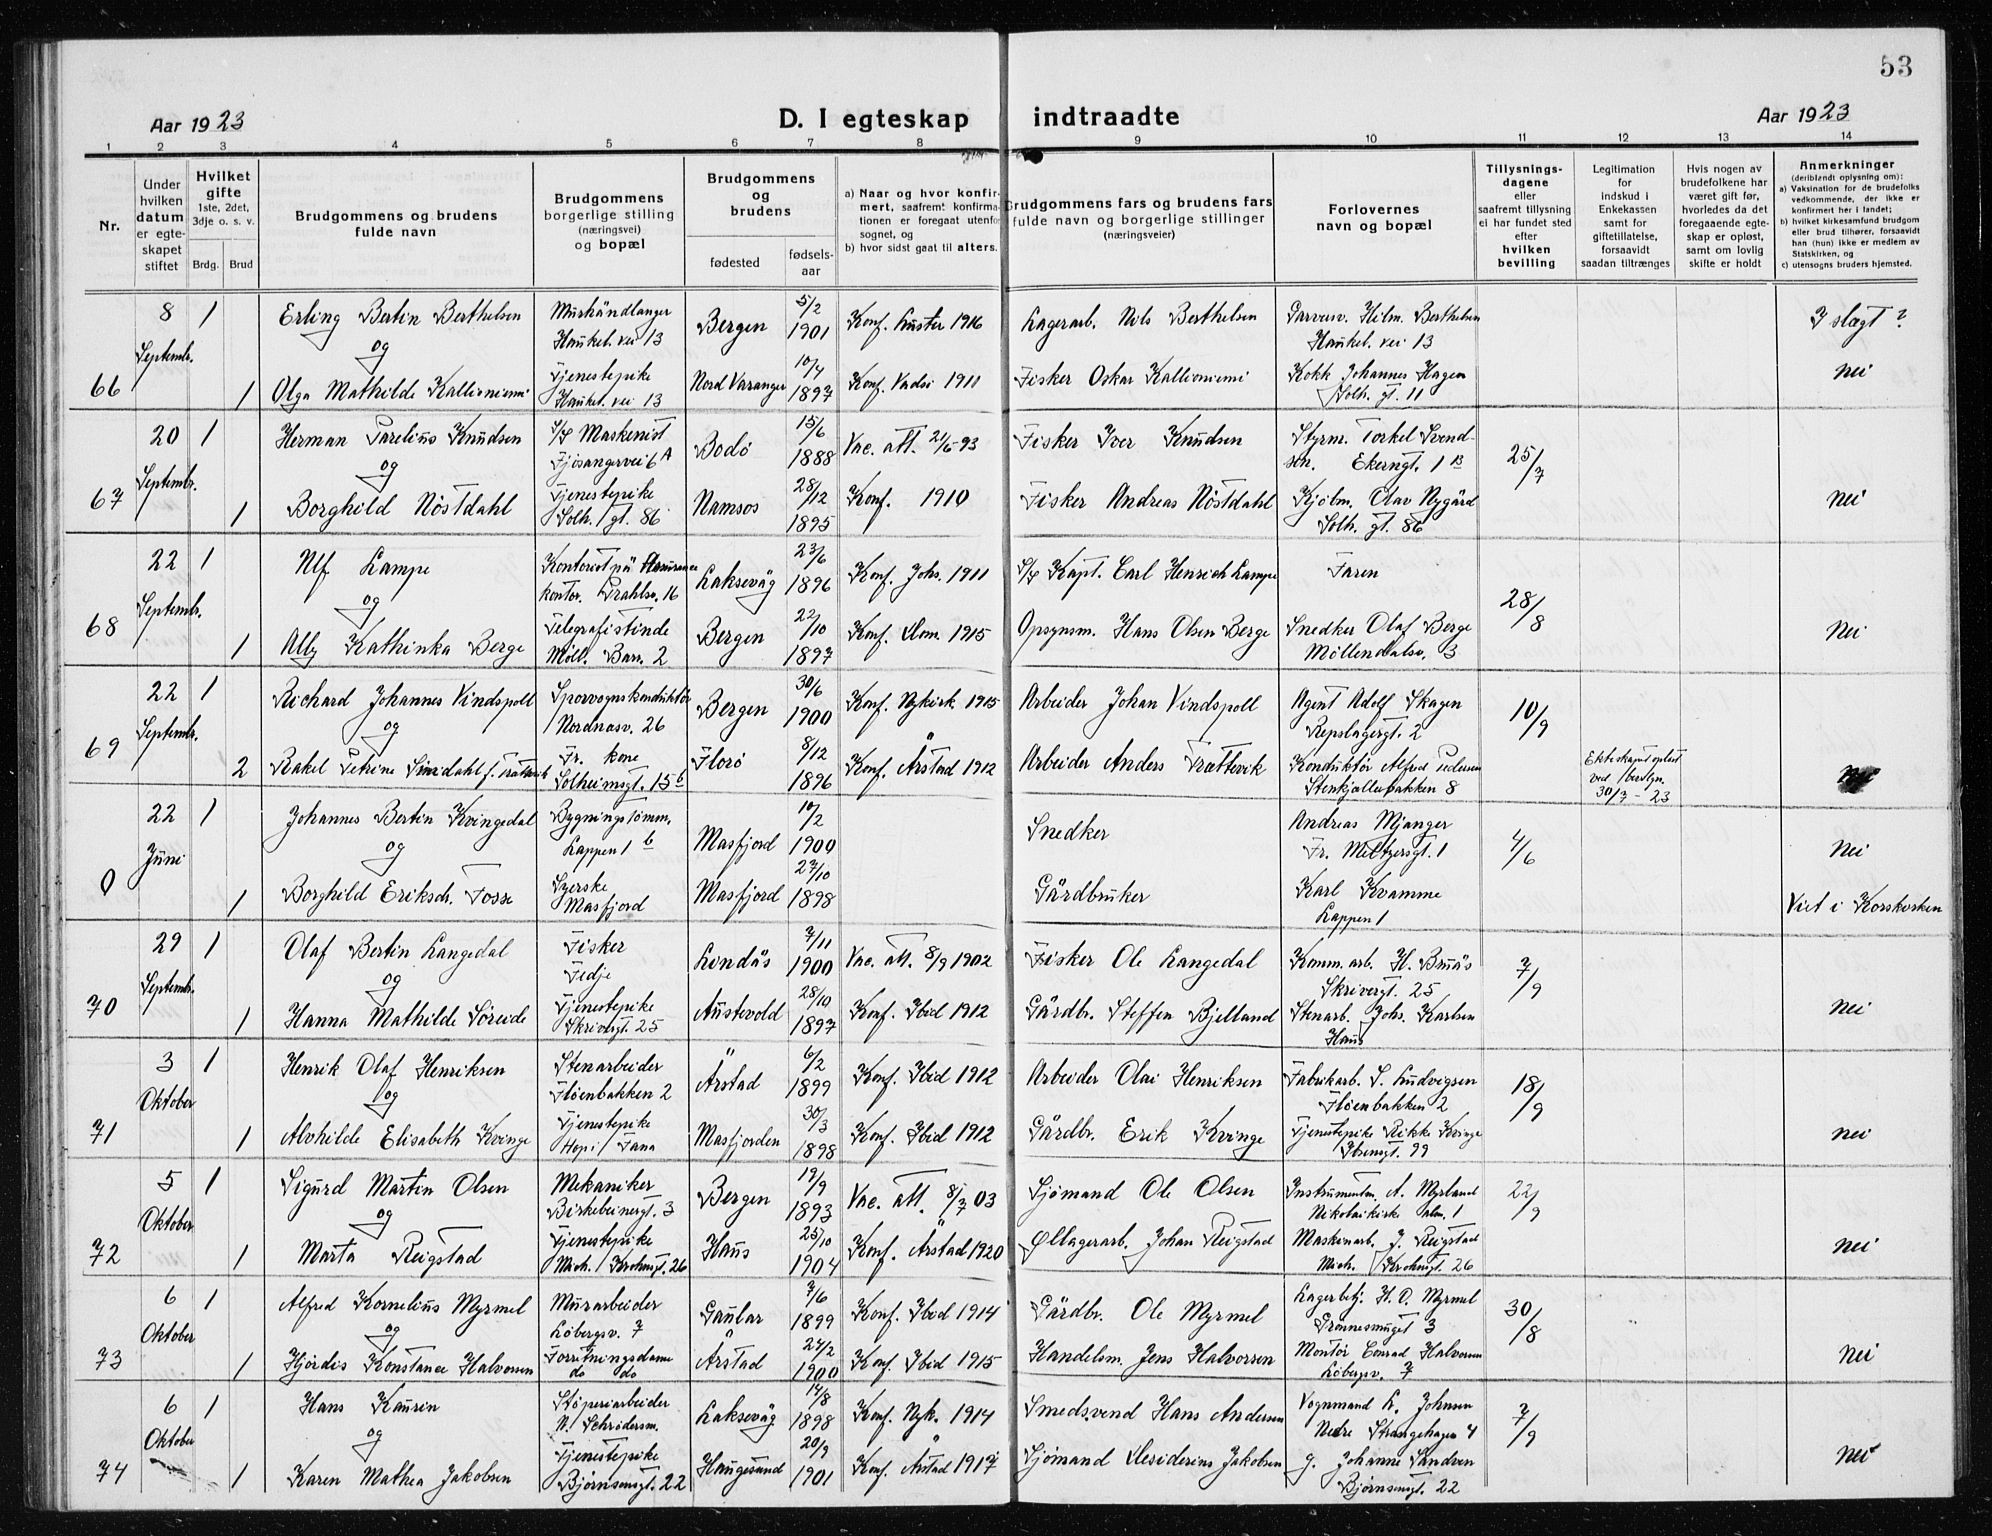 53
Aar 1923
D. I egteskap indtraadte
Aar 1923
1 2 3 4 5 6 7 8 9 10 11 12 13 14
Nr.
Under hvilken datum er egte-skapet stiftet
Hvilket gifte
1ste, 2det, 3dje o. s. v.
Brdg. Brud
Brudgommens og brudens fulde navn
Brudgommens borgerlige stilling (næringsvei) og bopæl
Brudgommens og brudens
fødested
fødsels-aar
a) Naar og hvor konfir-mert, saafremt konfirma-tionen er foregaat utenfor sognet, og
b) hvor sidst gaat til alters.
Brudgommens fars og brudens fars fulde navn og borgerlige stillinger (næringsveier)
Forlovernes navn og bopæl
Tillysnings-dagene eller saafremt tillysning ei har fundet sted efter hvilken bevilling
Legitimation for indskud i Enkekassen samt for giftetillatelse, forsaavidt saadan tiltrænges
Hvis nogen av brudefolkene har været gift før, hvorledes da det foregaaende egte-skap er opløst, samt om lovlig skifte er holdt
Anmerkninger (deriblandt oplysning om):
a) Vaksination for de brudefolks vedkommende, der ikke er konfirmert her i landet;
b) hvilket kirkesamfund brudgom eller brud tilhører, forsaavidt han (hun) ikke er medlem av Statskirken, og
c) utensogns bruders hjemsted.
66 8 Septembr. 1 Erling Bertin Berthelsen Murhåndlanger Haukel. vei 13 Bergen 5/2 1901 Konf. Luster 1916 Lagerarb. Nils Berthelsen Garvesv. Hilm. Berthelsen Haukel. vei 13 I slægt?
og
1 Olga Mathilde Kallioniemi Tjenestepike Haukel. vei 13 Nord Varanger 10/4 1897 Konf. Vadsö 1911 Fisker Oskar Kallioniemi Kokk Johannes Hagen Solh. gt. 11 nei
67 20 Septembr. 1 Herman Parelius Knudsen S/S Maskenist Fjøsangervei 6A Bodö 15/6 1888 Vac. att. 21/6-93 Fisker Iver Knudsen Styrm. Torkel Svend-sen. Ekerngt. 1 B 25/7
og
1 Borghild Nöstdahl Tjenestepike Solh. gt. 86 Namsos 28/12 1895 Konf. 1910 Fisker Andreas Nöstdahl Kjöbm. Olav Nygård Solh. gt. 86 nei
68 22 Septembr. 1 Alf Lampe Kontorist på kontor. 16 Laksevåg 23/6 1896 Konf. Johs. 1911 S/S Kapt. Carl Henrich Lampe Faren 28/8
og
1 Ally Kathinka Berge Telegrafistinde Möll. Barn. 2 Bergen 22/10 1897 Konf. Dom. 1915 Opsynsm. Hans Olsen Berge Snedker Olaf Berge Möllendalsv. 3 Nei
69 22 Septembr. 1 Richard Johannes Vindspoll Sporvognskonduktör Nordnæsv. 26 Bergen 30/6 1900 Konf. Nykirk. 1915 Arbeider Johan Vindspoll Agent Adolf Skagen Repslagergt. 2 10/9
og
2 Rakel Petrine f. Trættevik Fr. kone Solheimsgt. 15 b Florö 8/12 1896 Konf. Årstad 1912 Arbeider Anders Trættevik Konduktör Alfred Pedersen Stenkjellerbakken 8 Ekteskapet oplöst ved bevlgn. 30/7-23 nei
0 22 Juni 1 Johannes Bertin Kvingedal Bygningstömm. Lappen 1 b Masfjord 10/2 1900 Snedker Andreas Mjanger Fr. Meltzersgt. 1 4/6 nei
og
1 Borghild Eriksdr. Fosse Syerske Masfjord Masfjord 27/10 1898 Gårdbruker Karl Kvamme Lappen 1 Viet i Korskirken
70 29 Septembr. 1 Olaf Bertin Langedal Fisker Fedje Lindås 7/11 1900 Vac. att. 8/9 1902 Fisker Ole Langedal Komm. arb. H. Bruås Skrivergt. 25 7/9
og
1 Hanna Mathilde Söreide Tjenestepike Skrivergt. 25 Austevold 28/10 1897 Konf. Ibid 1912 Gårdbr. Steffen Bjelland Stenarb. Johs. Karlsen Haus nei
71 3 Oktober 1 Henrik Olaf Henriksen Stenarbeider Flöenbakken 2 Årstad 6/2 1899 Konf. Ibid 1912 Arbeider Olai Henriksen Fabrikarb. S. Ludvigsen Flöenbakken 2 18/9
og
1 Alvhilde Elisabeth Kvinge Tjenestepike Hop i Fana Masfjorden 30/3 1898 Konf. Ibid 1912 Gårdbr. Erik Kvinge Tjenestepike Rikke Kvinge Ibsensgt. 99 nei
72 5 Oktober 1 Sigurd Martin Olsen Mekaniker Birkebeinergt. 3 Bergen 19/9 1893 Vac. att. 8/7 03 Sjömand Ole Olsen Instrumentm. A. Myrland Nikolaikirke alm. 1 22/9
og
1 Marta Reigstad Tjenestepike Mich. Krohnsgt. 26 Haus 25/10 1904 Konf. Årstad 1920 Øllagerarb. Johan Reigstad Maskinarb. J. Reigstad Mich. Krohnsgt. 26 nei
73 6 Oktober 1 Alfred Kornelius Myrmel Murarbeider Löbergsv. 7 Gaular 7/6 1899 Konf. Ibid 1914 Gårdbr. Ole Myrmel Lagerbetj. H. O. Myrmel Grönnesmuget 3 30/8
og
1 Hjördis Konstance Halvorsen Forretningsdame do do Årstad 24/2 1900 Konf. Ibid 1915 Handelsm. Jens Halvorsen Montör Conrad Halvorsen Löbergsv. 7 nei
74 6 Oktober 1 Hans Kaurin Støperiarbeider N. Schrödersm. Laksevåg 14/8 1898 Konf. Nyk. 1914 Smedsvend Hans Andersen Vognmand L. Johnsen Nedre Strangehagen 4 7/9
og
1 Karen Mathea Jakobsen Tjenestepike Bjørnsonsgt. 22 Haugesund 20/9 1901 Konf. Årstad 1917 Sjömand Desiderius Jakobsen g. Johanne Sandven Bjørnsonsgt. 22 nei